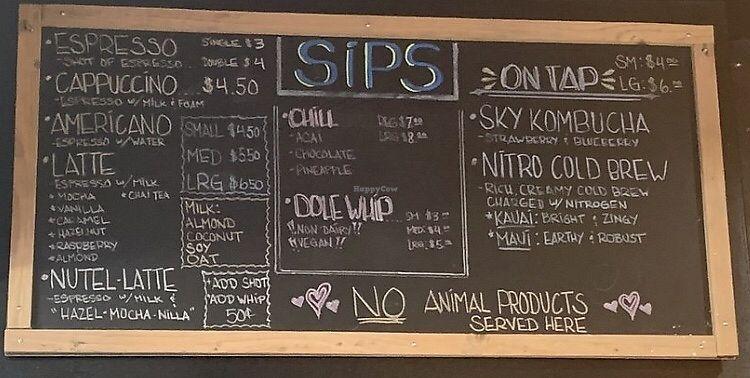 SIPS
• ESPRESSO SINGLE $3
- SHOT OF ESPRESSO... DOUBLE $4
• CAPPUCCINO ... $4.50
- ESPRESSO W/ MILK & FOAM
• AMERICANO
ESPRESSO W/ WATER
• LATTE
- ESPRESSO W/ MILK
* MOCHA * CHAI TEA
* VANILLA
* CARAMEL
* HAZELNUT
* RASPBERRY
* ALMOND
SMALL $4.50
MED $5.50
LRG $6.50
MILK:
ALMOND
COCONUT
SOY
OAT
• NUTEL-LATTE
- ESPRESSO W/ MILK &
"HAZEL-MOCHA-NILLA"
*ADD SHOT
*ADD WHIP
50¢
• CHILL $7.00
LRG $8.00
- ACAI
- CHOCOLATE
- PINEAPPLE
HappyCow
• DOLE WHIP... SM $3.00
!!NON DAIRY!! MED $4.00
!!VEGAN!! LRG $5.00
ON TAP SM: $4.00
LG: $6.00
• SKY KOMBUCHA
- STRAWBERRY & BLUEBERRY
• NITRO COLD BREW
- RICH, CREAMY COLD BREW
CHARGED W/ NITROGEN
* KAUAI: BRIGHT & ZINGY
* MAUI: EARTHY & ROBUST
NO ANIMAL PRODUCTS
SERVED HERE